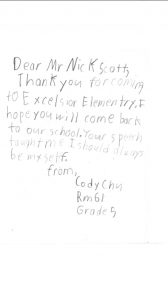 Dear Mr Nick Scott,
Thank you for coming
to Excelsior Elementry. I
hope you will come back
to our school. Your speech
taught me I should always
be myself.
from,
Cody Chu
Rm 61
Grade 5